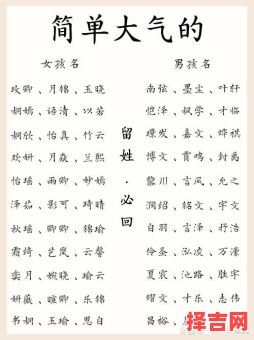 简单大气的
女孩名
玫卿、月锦、玉晓
桐嫣、语清、以若
桐欣、怡真、竹云
欢妍、月焱、兰熙
怡瑶、雨卿、妙嫣
泽茹、影可、绮晴
秋瑶、卿卿、锦瑜
霜绮、艺岚、云馨
奕月、婉晓、瑜云
妍薇、暄卿、乐锦
书桐、玉瑜、思自
留姓·必回
男孩名
南弦、墨尘、叶轩
恺泽、枫学、才临
璟发、嘉文、烨祺
博文、霄鸣、封禹
黎川、言风、允之
润绍、铭文、宇文
白羽、言泽、抒浩
伶圣、泓凌、万濠
夏宸、沱路、胜宇
熠文、才乐、志伟
昌裕、
择吉网